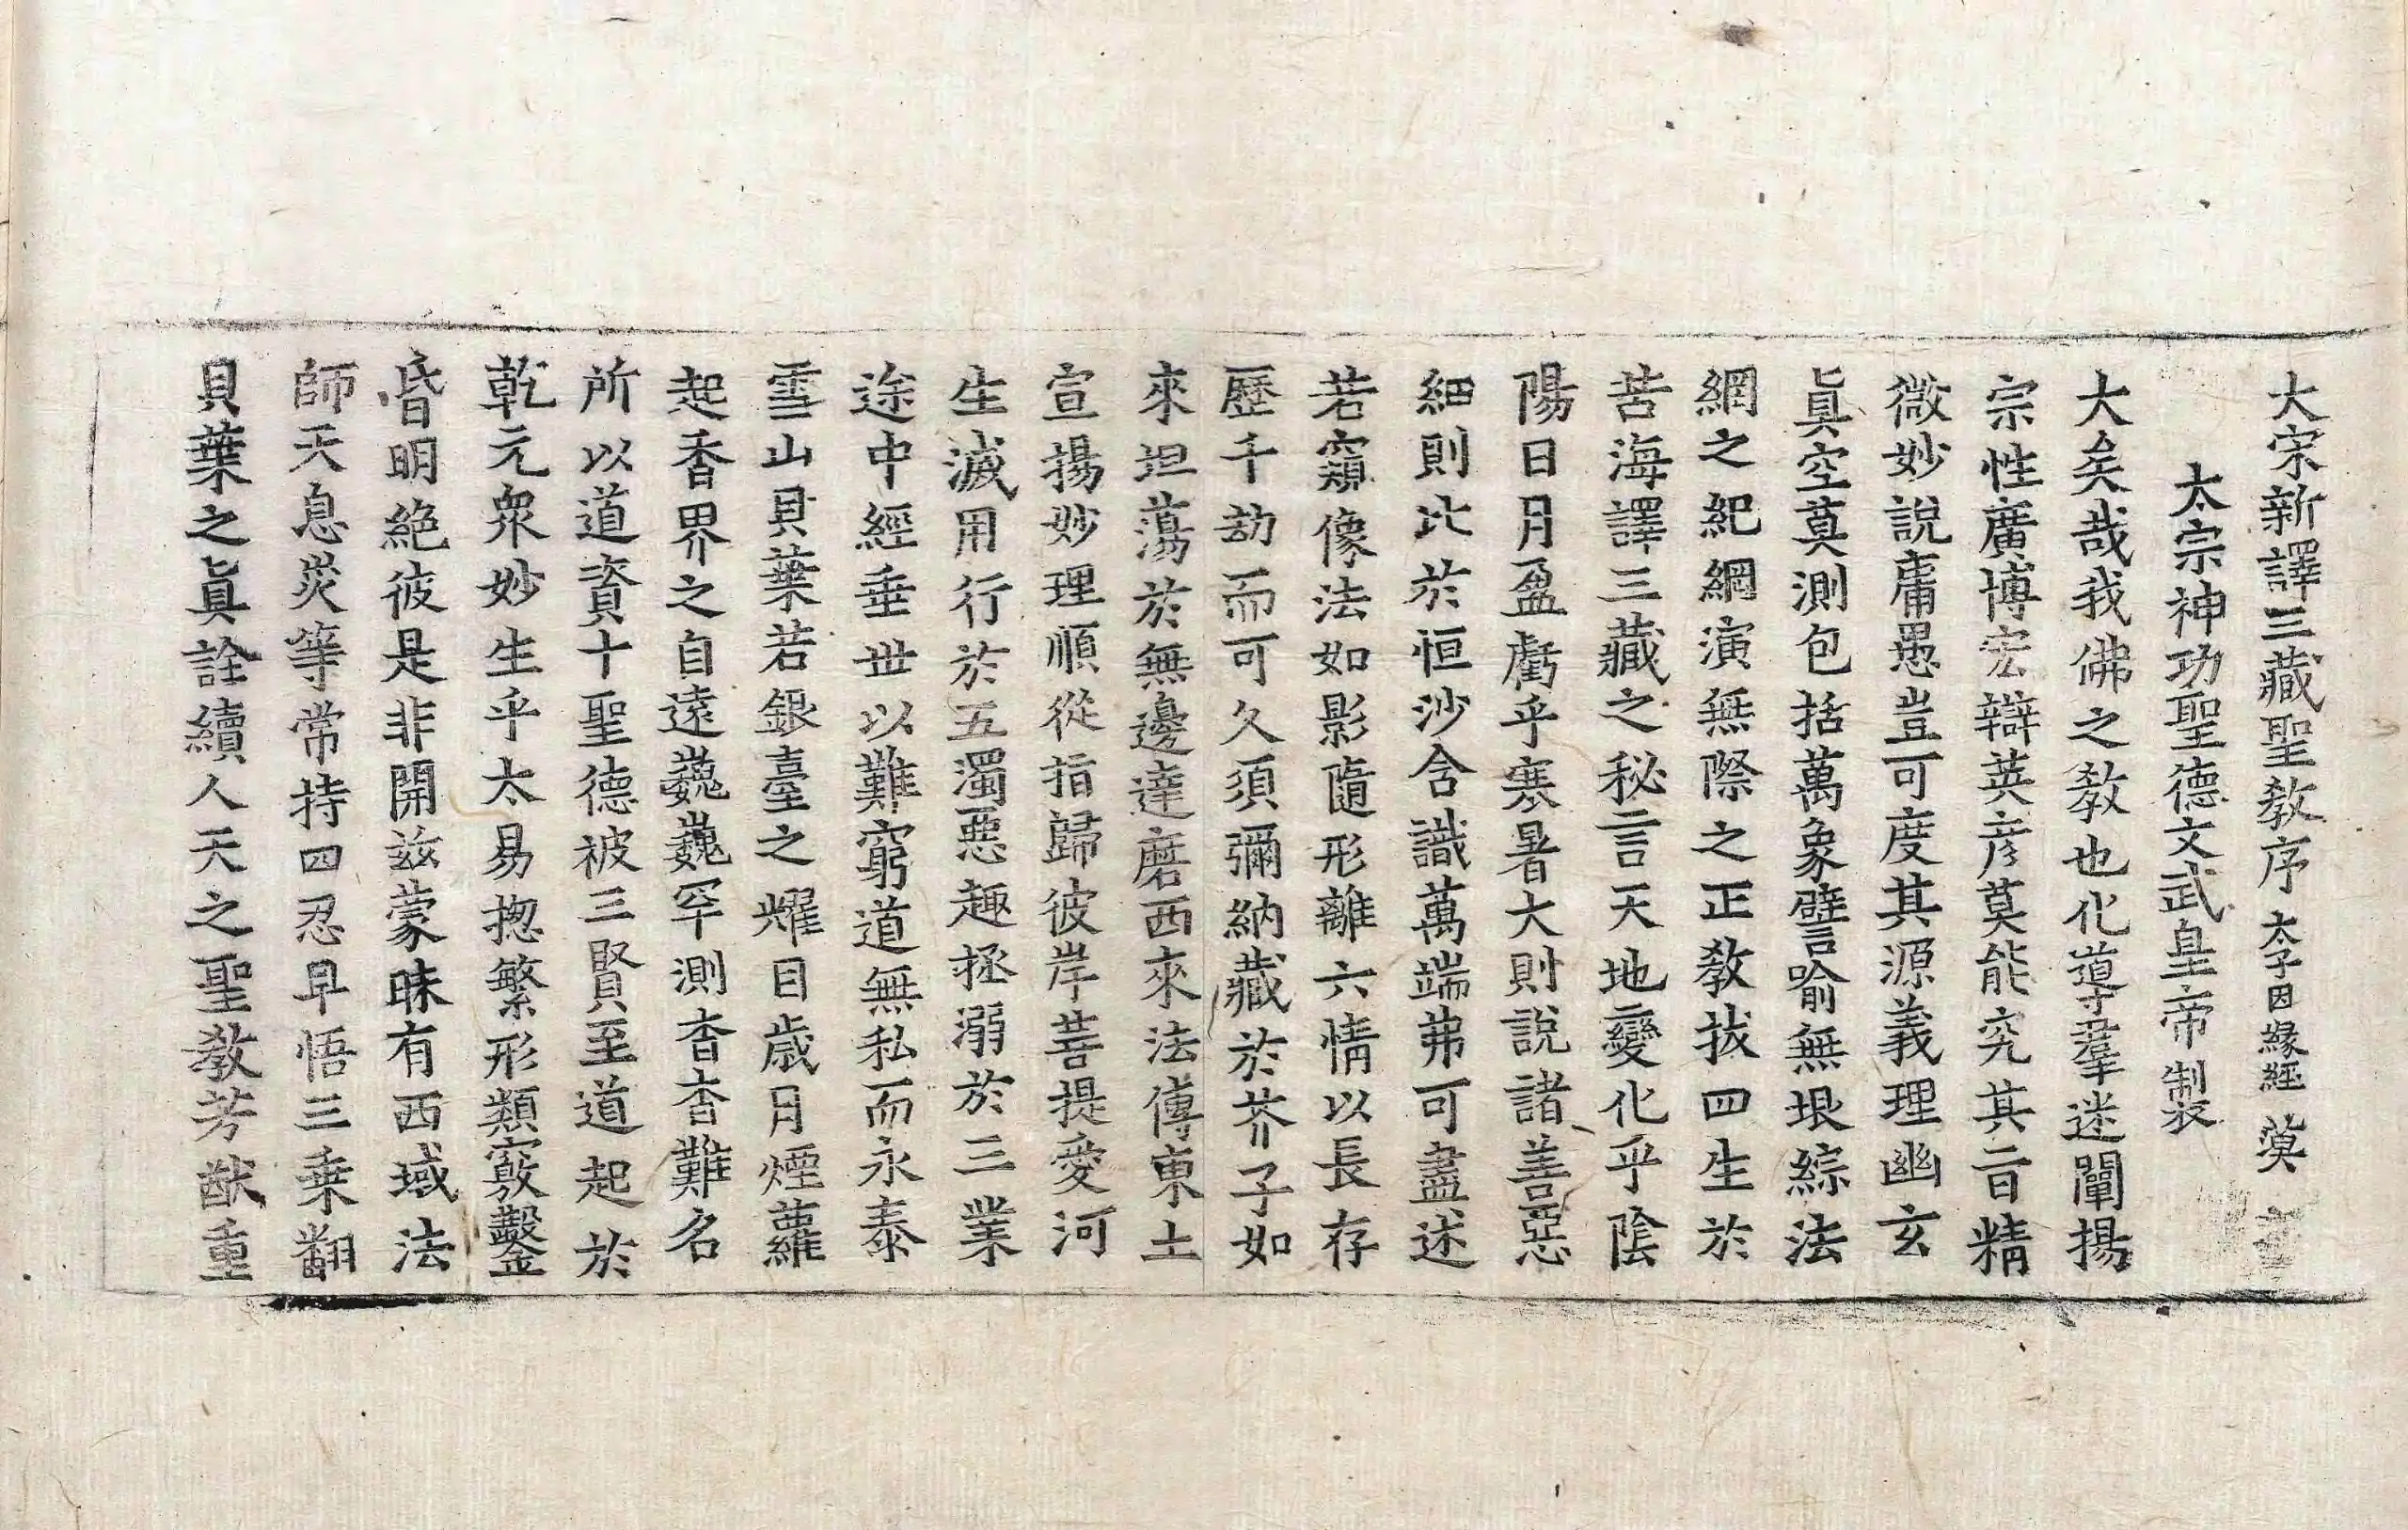 大宋新譯三藏聖教序 太子因緣經 漠
太宗神功聖德文武皇帝 制裂
大矣哉我佛之教也化導羣迷闡揚
宗性廣博宏辯英彦莫能究其旨精
微妙說庸愚豈可度其源義理幽玄
眞空莫測包括萬象譬喻無垠綜法
網之紀綱演無際之正教拔四生於
苦海譯三藏之秘言天地變化乎陰
陽日月盈虧乎寒暑大則說諸善惡
細則比於恒沙含識萬端弗可盡述
若窺像法如影隨形離六情以長存
歷千劫而可久須彌納藏於芥子如
來坦蕩於無邊達磨西來法傳東土
宣揚妙理順從指歸彼岸菩提愛河
生滅用行於五濁惡趣拯溺於三業
途中經垂世以難窮道無私而永泰
雪山貝葉若銀臺之耀目歳月煙蘿
起香界之自遠巍巍罕測杳杳難名
所以道資十聖德被三賢至道起於
乾元衆妙生乎太易揔繁形類竅鑿
昏明絕彼是非開兹蒙昧有西域法
師天息災等常持四忍早悟三乗翻
貝葉之眞詮續人天之聖教芳猷重